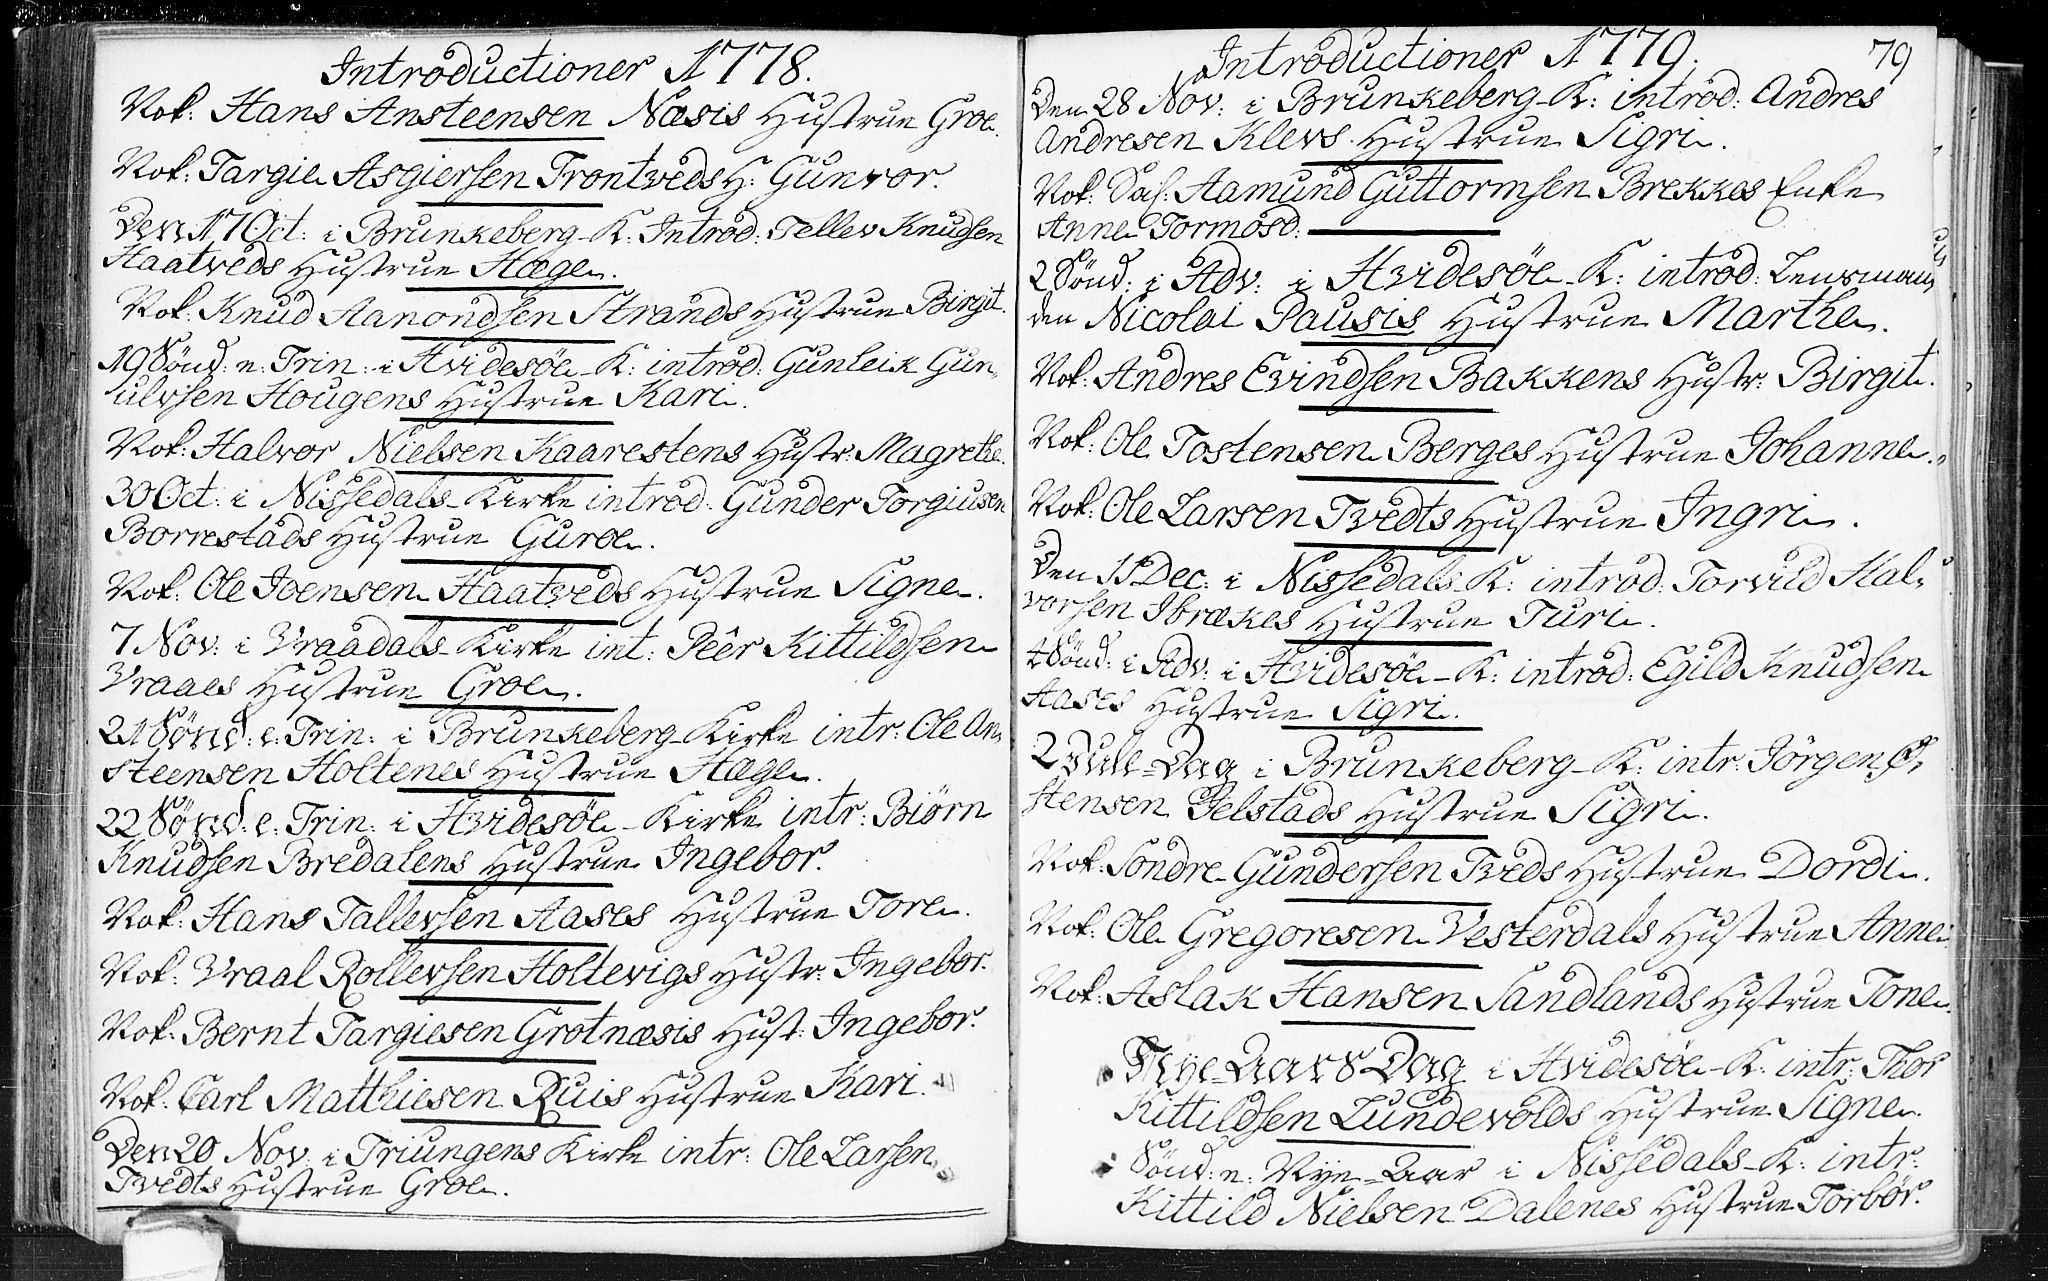 Introductioner 1778.
Nok: Hans Ansteensen Næsis Hustrue Groe.
Nok: Targie Asgiersen Trontveds H: Gunvor.
Den 17 Oct: i Brunkeberg K: Introd: Tellev Knudsen
Haatveds Hustrue Hæge.
Nok: Knud Aanondsen Strands Hustrue Birgit.
19 Sönd: e: Trin: i Hvidesöe K: introd: Gunleik Gun,
ulvsen Hougens Hustrue Kari.
Nok: Halvor Nielsen Kaarestens Hustr: Magrethe.
30 Oct: i Nissedals Kirke introd: Gunder Torgiusen
Borrestads Hustrue Guroe.
Nok: Ole Joensen Haatveds Hustrue Signe.
7 Nov: i Vraadals Kirke int: Peër Kittildsen
Vraaes Hustrue Groe.
21 Sönd: e: Trin: i Brunkeberg Kirke intr: Ole An,
steensen Holtenes Hustrue Hæge.
22 Sönd: e: Trin: i Hvidesöe Kirke intr: Biörn
Knudsen Bredalens Hustrue Ingebor.
Nok: Hans Tallevsen Aases Hustrue Tore.
Nok: Vraal Rollevsen Holtevigs Hustr: Ingebor.
Nok: Bernt Targiesen Grotnæsis Hust: Ingebor.
Nok: Carl Matthiesen Ruis Hustrue Kari.
Den 20 Nov: i Triungens Kirke intr: Ole Larsen
Tvedts Hustrue Groe.
Introductioner 1779.
79
Den 28 Nov: i Brunkeberg K: introd: Andres
Andresen Klevs Hustrue Sigri.
Nok: Sal: Aamund Guttormsen Brekkes Enke
Anne Tormosd:
2 Sönd: i Adv: i Hvidesöe K: introd: Lensman,
den Nicolai Pausis Hustrue Marthe.
Nok: Andres Evindsen Bakkens Hustr: Birgit.
Nok: Ole Tostensen Berges Hustrue Johanne.
Nok: Ole Larsen Tvedts Hustrue Ingri.
Den 11 Dec: i Nissedals K: introd: Torvild Hal,
vorsen Ibrækes Hustrue Turi.
4 Sönd: i Adv: i Hvidesöe K: introd: Egild Knudsen
Aases Hustrue Sigri.
2 Jule-Dag i Brunkeberg K: intr: Jörgen Ø,
stensen Jelstads Hustrue Sigri.
Nok: Sondre Gundersen Tveds Hustrue Dordi.
Nok: Ole Gregoresen Vesterdals Hustrue Anne.
Nok: Aslak Hansen Sandlands Hustrue Tone.
Nye-Aars Dag i Hvidesöe K: intr: Thor
Kittildsen Lundevolds Hustrue Signe.
Sönd: e: Nye-Aar i Nissedals K: intr:
Kittild Nielsen Dalenes Hustrue Torbör.